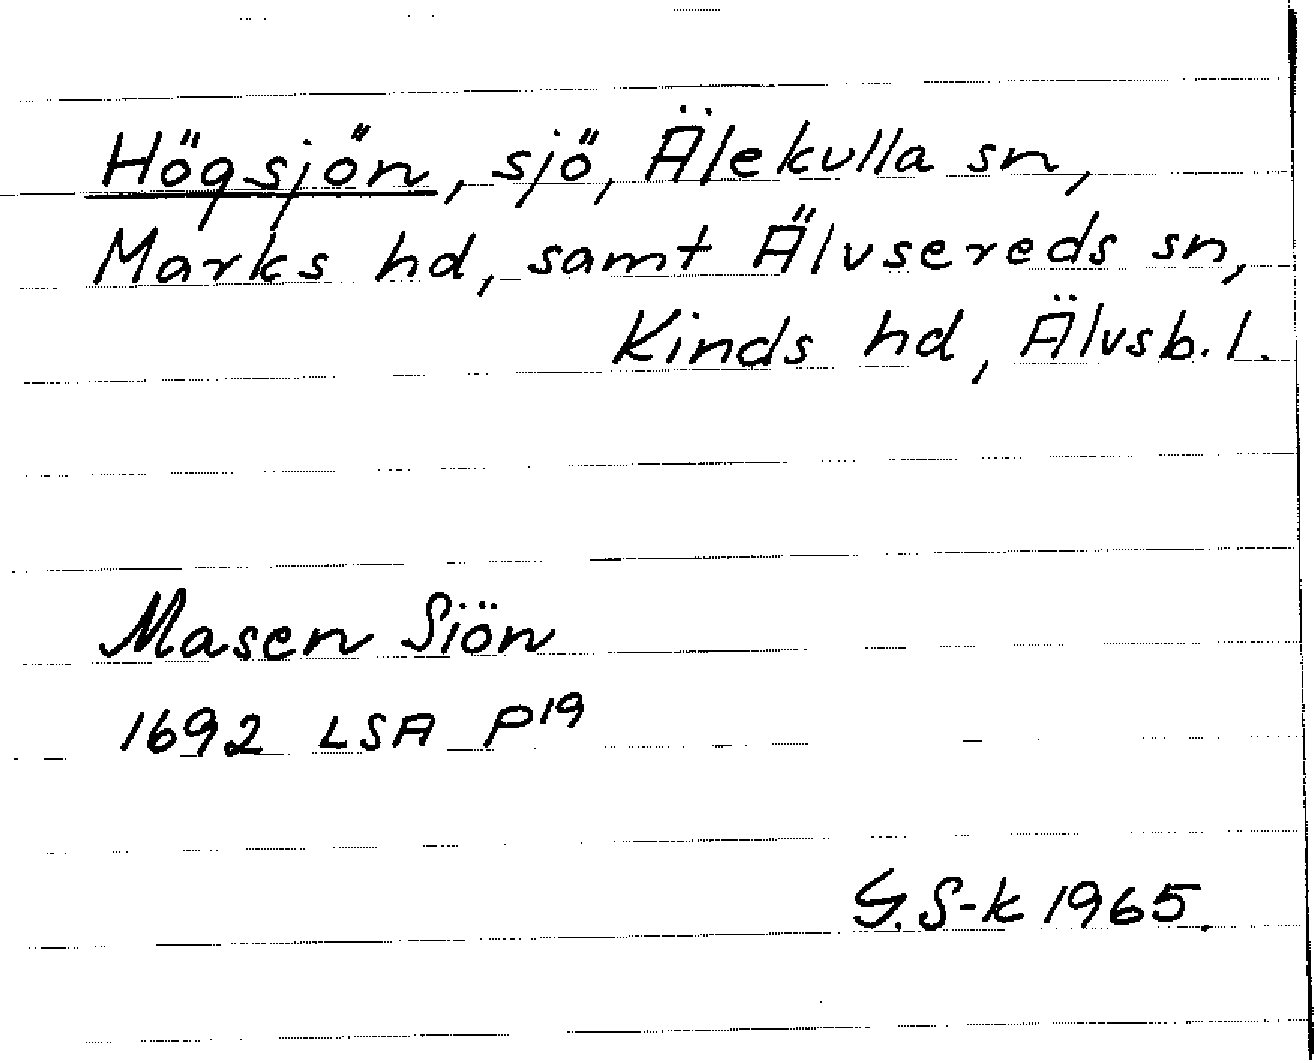 Högsjön, sjö, Älekulla sn,
Marks hd, samt Älvsereds sn,
Kinds hd, Älvsb. l.
Masen Siön
1692 LSA P19
G. S-k 1965.